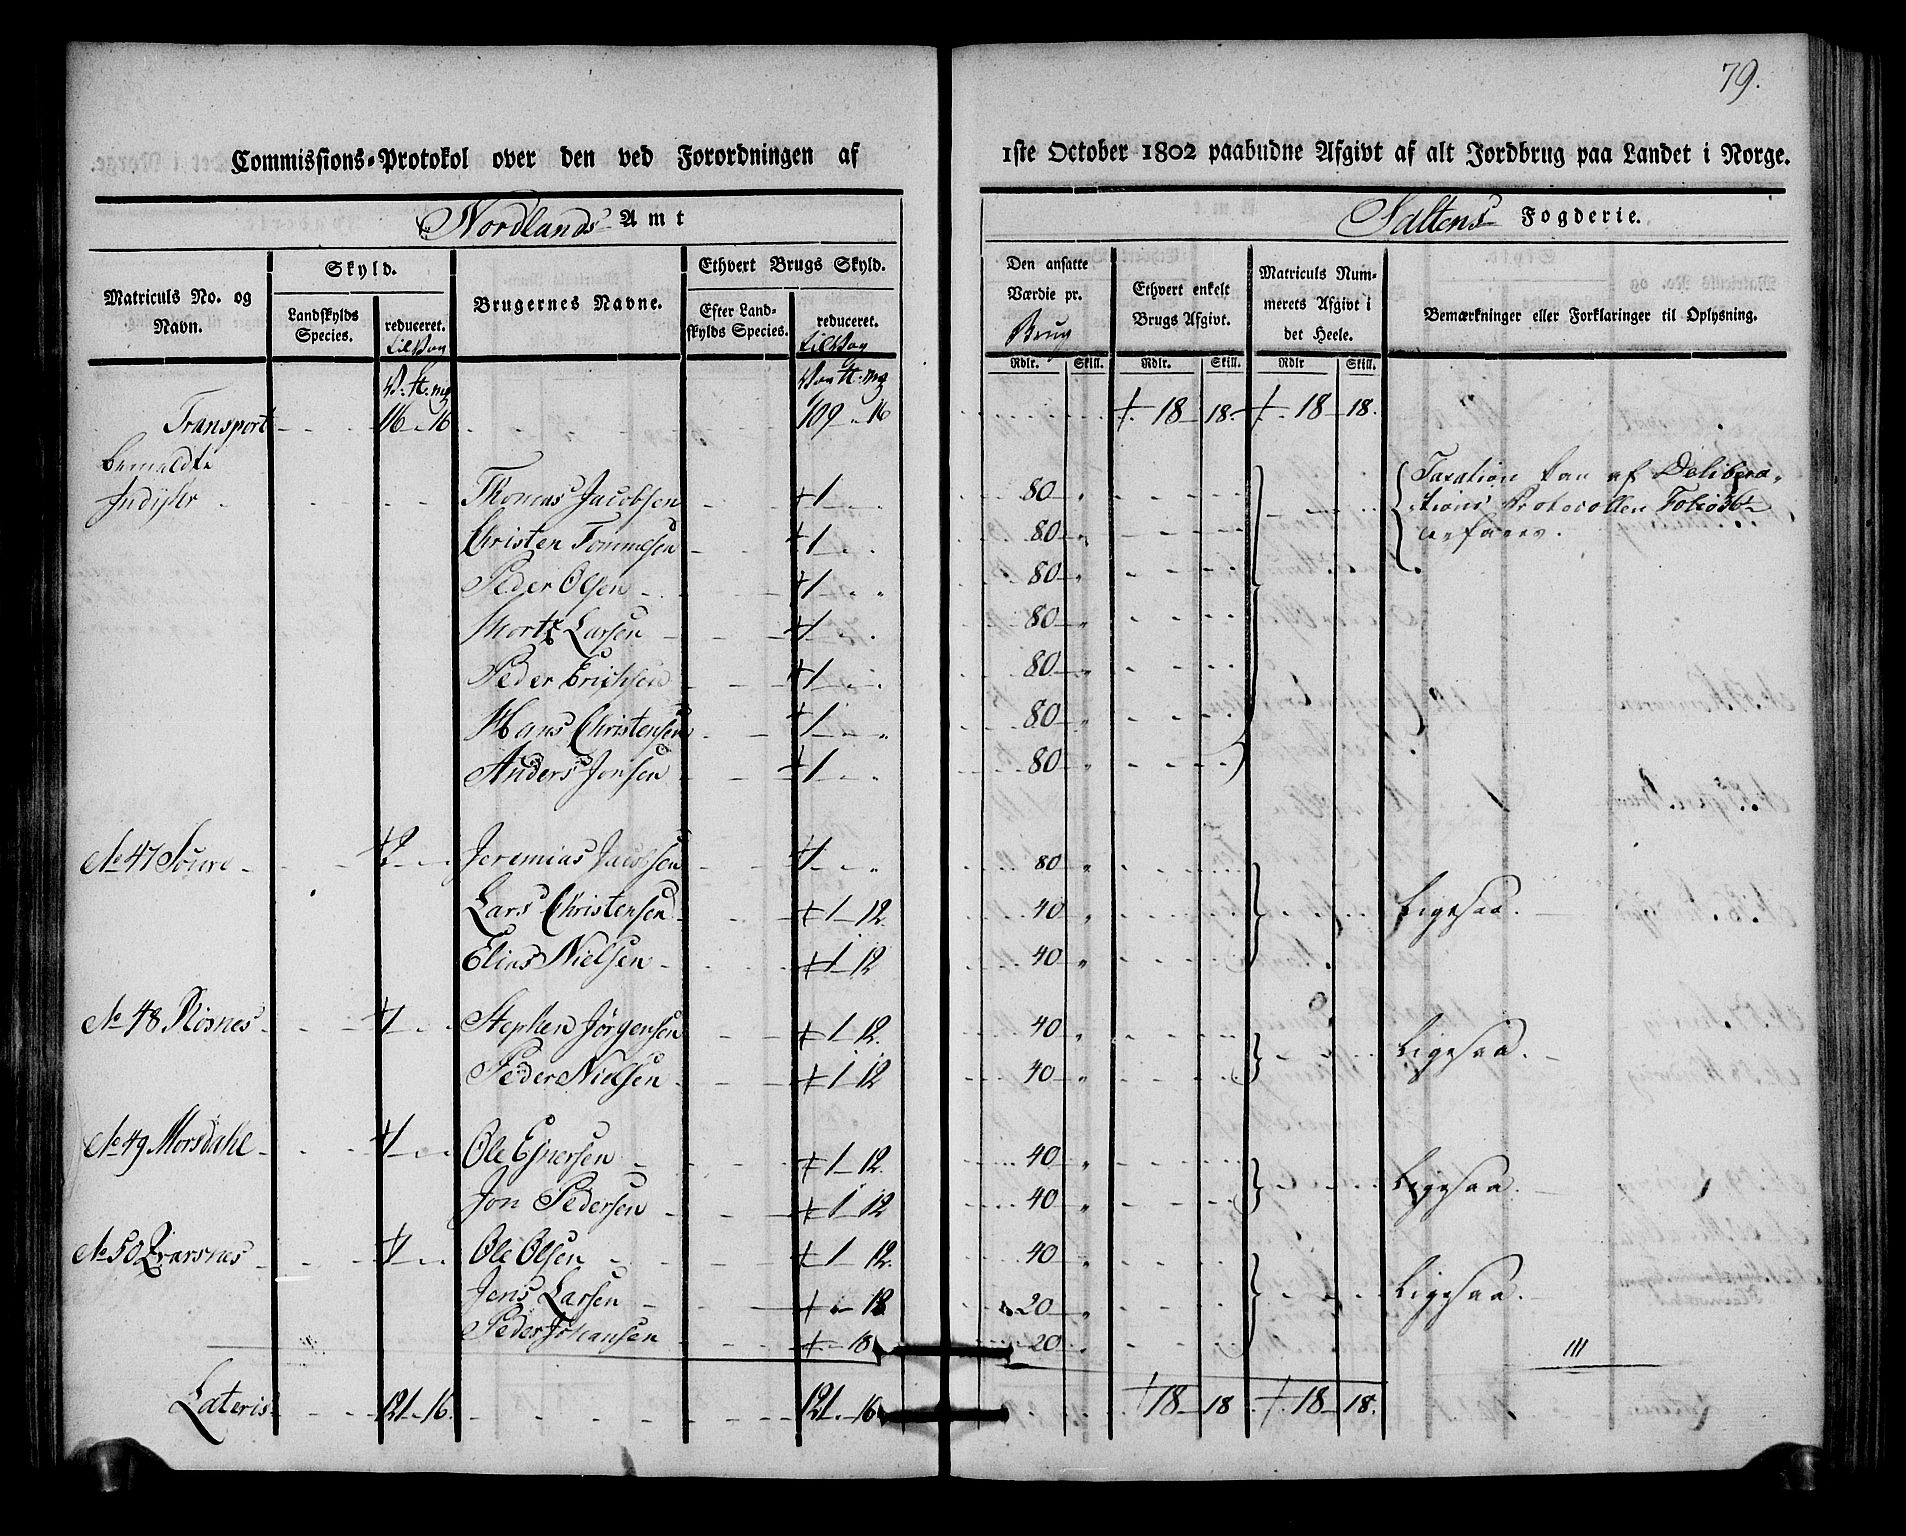 79.
Commissions-Protokol over den ved Forordningen af 1ste October 1802 paabudne Afgivt af alt Jordbrug paa Landet i Norge.
Nordlands Amt
Saltens Fogderie.
Matriculs No. og Navn.
Skyld.
Landskylds Species.
reduceret.
Brugernes Navne.
Ethvert Brugs Skyld.
Efter Landskylds Species.
reduceret.
Den ansatte Værdie pr. Brug
Ethvert enkelt Brugs Afgivt.
Matriculs Nummerets Afgivt i det Heele.
Bemærkninger eller Forklaringer til Oplysning.
Rdlr. Skill. Rdlr. Skill. Rdlr Skill.
Transport 116 16 109 16 18 18 18 18.
bemeldte
Indyhr Thomas Jacobsen 1 80 Taxation kan af Delibera-
tions Protocollen Folio 36
erfares.
Christen Tommesen 1 80
Peder Olsen 1 80
Mortz Larsen 1 80
Peder Erichsen 1 80
Hans Christensen 1 80
Anders Jonsen 1 80
No 47 Soure 2 Jeremias Jacobsen 1 80
Lars Christensen 1 12 40 Ligesaa.
Elias Nielsen 1 12 40
No 48 Rosnes 1 Stephen Jörgensen 1 12. 40 Ligesaa.
Peder Nielsen 1 12 40
No 49 Morsdahl 1 Ole Ejnersen 1 12. 40 Ligesaa.
Jon Pedersen 1 12 40
No 50 1 Ole Olsen 1 12. 40
Jens Larsen 18 20 Ligesaa.
Peder Johansen 18 20
Lateris 121 16. 121 16 18 18 18 18.